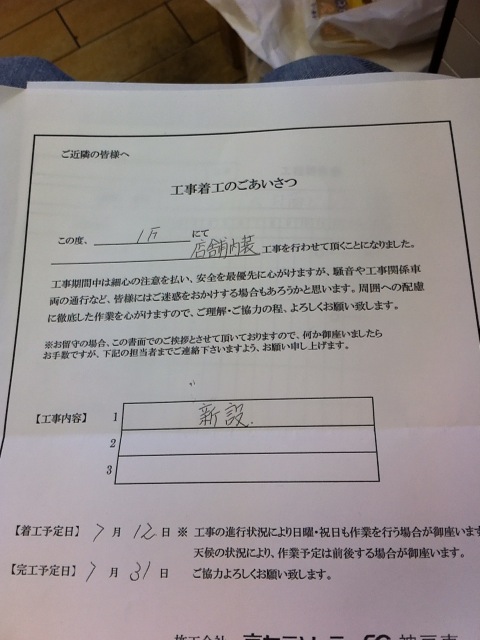 ご近隣の皆様へ
工事着工のごあいさつ
この度、 1F にて
店舗内装 工事を行わせて頂くことになりました。
工事期間中は細心の注意を払い、安全を最優先に心がけますが、騒音や工事関係車
両の通行など、皆様にはご迷惑をおかけする場合もあろうかと思います。周囲への配慮
に徹底した作業を心がけますので、ご理解・ご協力の程、よろしくお願い致します。
※お留守の場合、この書面でのご挨拶とさせて頂いておりますので、何か御座いましたら
お手数ですが、下記の担当者までご連絡下さいますよう、お願い申し上げます。
【工事内容】 1 新設.
2
3
【着工予定日】 7 月 12 日 ※ 工事の進行状況により日曜・祝日も作業を行う場合が御座います
天候の状況により、作業予定は前後する場合が御座います。
【完工予定日】 7 月 31 日 ご協力よろしくお願い致します。
株式会社